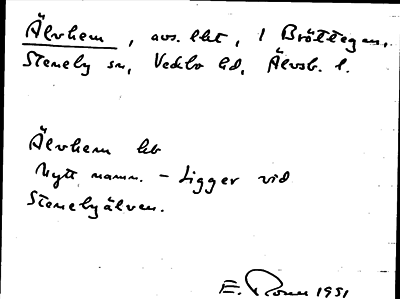 Älvhem, avs. lht, i Bröttegen,
Steneby sn, Vedbo hd, Älvsb. l.
Älvhem hb
Nytt namn. – Ligger vid
Stenebyälven.
E. 1951